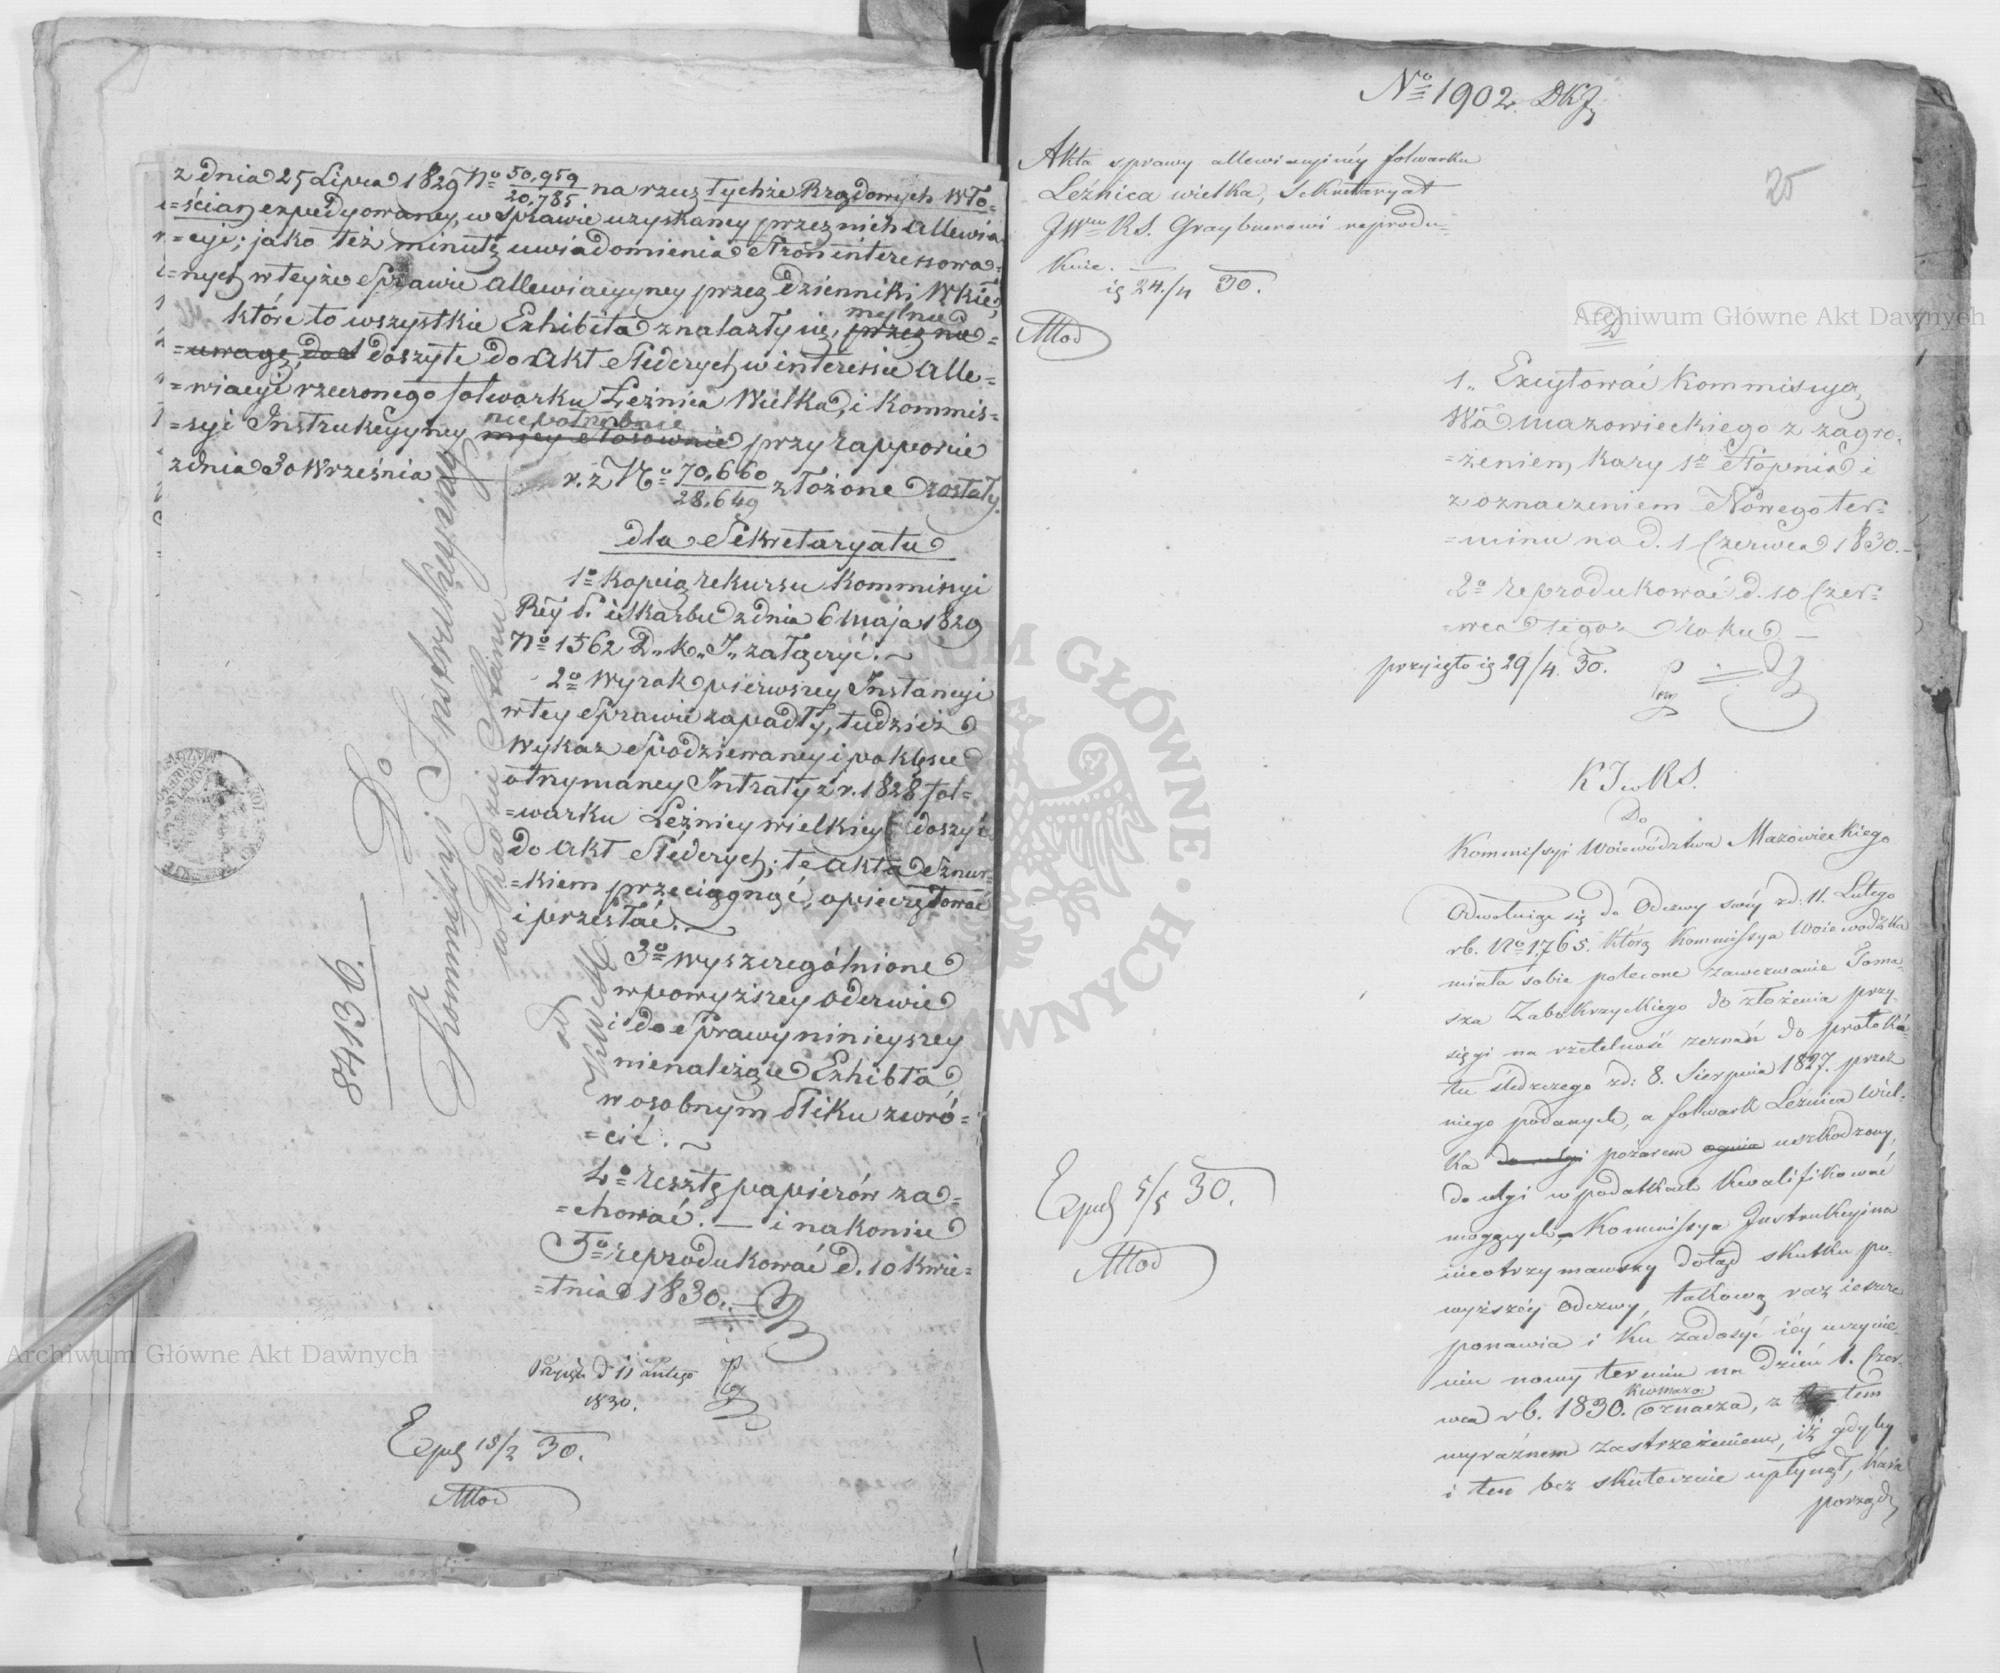 z dnia 25 Lipca 1829 No 50,959/20,785 na rzecz tychże Rządowych Wło=
=ścian expedyowaney, w sprawie uzyskaney przez nich allewia
=cyi; jako też minutę uwiadomienia Stron interessowa=
=nych w teyże Sprawie allewiacyyney przez Dzienniki Wkie,
które to wszystkie Exhibita znalazły się, mylnie przez nie=
=uwagę, do doszyte do akt Śledczych w interessie alle=
=wiacyi rzeczonego folwarku Leżnica Wielka, i Kommis=
=syi Instrukcyyney niepotrzebnie przy rapporcie
z dnia 30 Września
r. z No 70,660/28,649 złożone zostały.
dla Sekretaryatu
1o kopią rekursu Kommisyi
Rey P. i Skarbu z dnia 6 Maja 1829
No 1562 D. K. J. załączyć.
2o wyrok pierwszey Instancyi
w tey Sprawie zapadły, tudzież
Wykaz Spodziewaney i po klęsce
otrzymaney Intraty z r. 1828 fol=
=warku Leźnicy wielkiey doszyć
do akt Śledczych; te akta Sznur=
=kiem przeciągnąć, opieczętować
i przesłać.
3o wyszczególnione
w powyższey Odezwie
i do Sprawy ninieyszey
nienależące Exhibta
w osobnym Pliku zwró=
=cić.
4o resztę papierów za=
=chować. — i nakoniec
5o reprodukować d. 10 Kwie=
=tnia 1830.
Przyięto d 11 Lutego
1830.
Exped 15/2 30.
87136.
Do
Kommissyi Instrukcyiney
w Radzie Stanu
od
KWM
No 1902. DKJ
25
Akta sprawy allewiacyinéy folwarku
Leźnica wielka, Sekretaryat
JWmu RS. Graybnerowi reprodu=
kuie.
ig 24/4 30.
D
1. Excytować Kommissyą
Wa Mazowieckiego z zagro=
=żeniem kary 1o Stopnia i
z oznaczeniem Nowego ter=
=minu na d. 1 Czerwca 1830.
2o reprodukować d. 10 Czer=
=wca tegoż roku.
przyięto ig 29/4. 30.
K J w RS.
Do
Kommissyi Woiewództwa Mazowieckiego
Odwołuiąc się do Odezwy swéy z d: 11. Lutego
r b. No 1765. którą Kommissya Woiewódzka
miała sobie polecone zawezwanie Toma=
sza Zabokrzyckiego do złożenia przy=
sięgi na rzetelność zeznań do protokó=
łu śledczego z d: 8. Sierpnia 1827. przez
niego podanych, a folwark Leźnica Wiel=
ka do ulgi pożarem ognia uszkodzony,
do ulgi w podatkach kwalifikować
mogących, Kommissya Instrukcyina
nieotrzymawszy dotąd skutku po=
wyższéy Odezwy, takową raz ieszcze
ponawia i ku zadosyć iéy uczynie=
niu nowy termin na dzień 1. Czer=
wca r b. 1830. oznacza, z tem
wyraźnem zastrzeżeniem, iż gdyby
i ten bez skutecznie upłynął, kara
porząd
Exped 5/5 30.
Archiwum Główne Akt Dawnych
Archiwum Główne Akt Dawnych